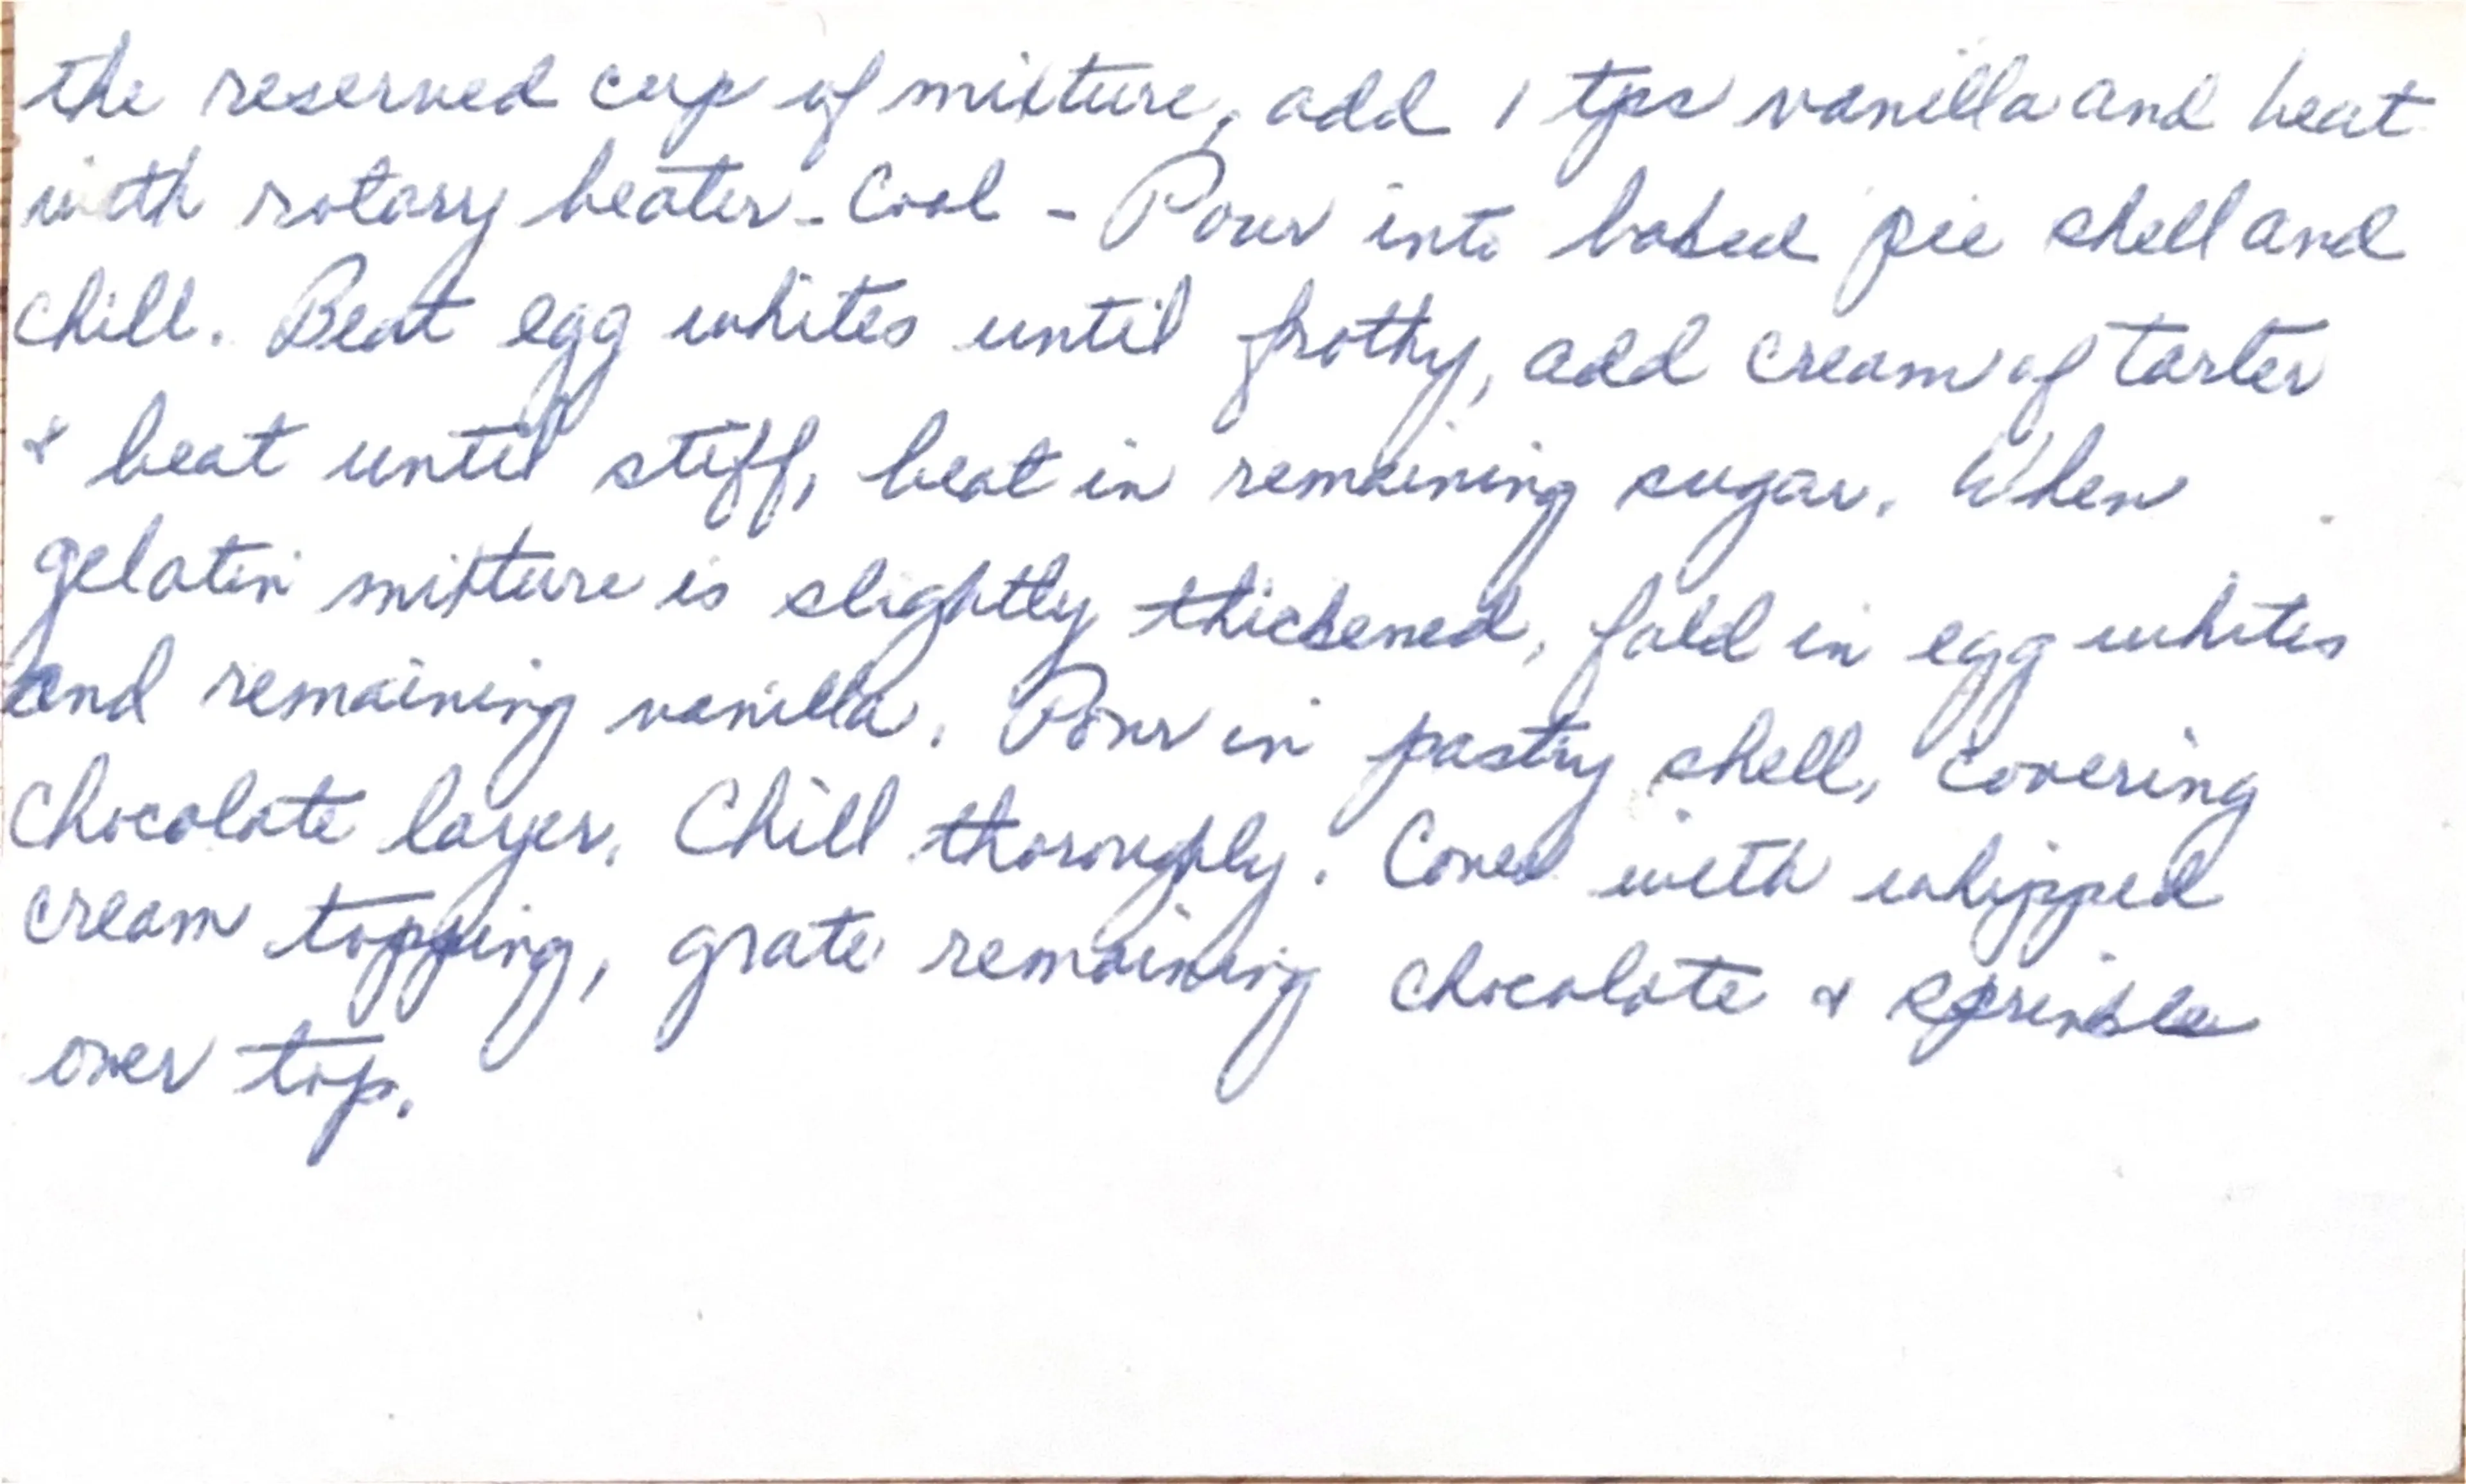 the reserved cup of mixture, add 1 tps vanilla and beat
with rotary beater - Cool - Pour into baked pie shell and
chill. Beat egg whites until frothy, add cream of tarter
& beat until stiff, beat in remaining sugar. When
gelatin mixture is slightly thickened, fold in egg whites
and remaining vanilla. Pour in pastry shell, covering
chocolate layer. Chill thoroughly. Cover with whipped
cream topping, grate remaining chocolate & sprinkle
over top.